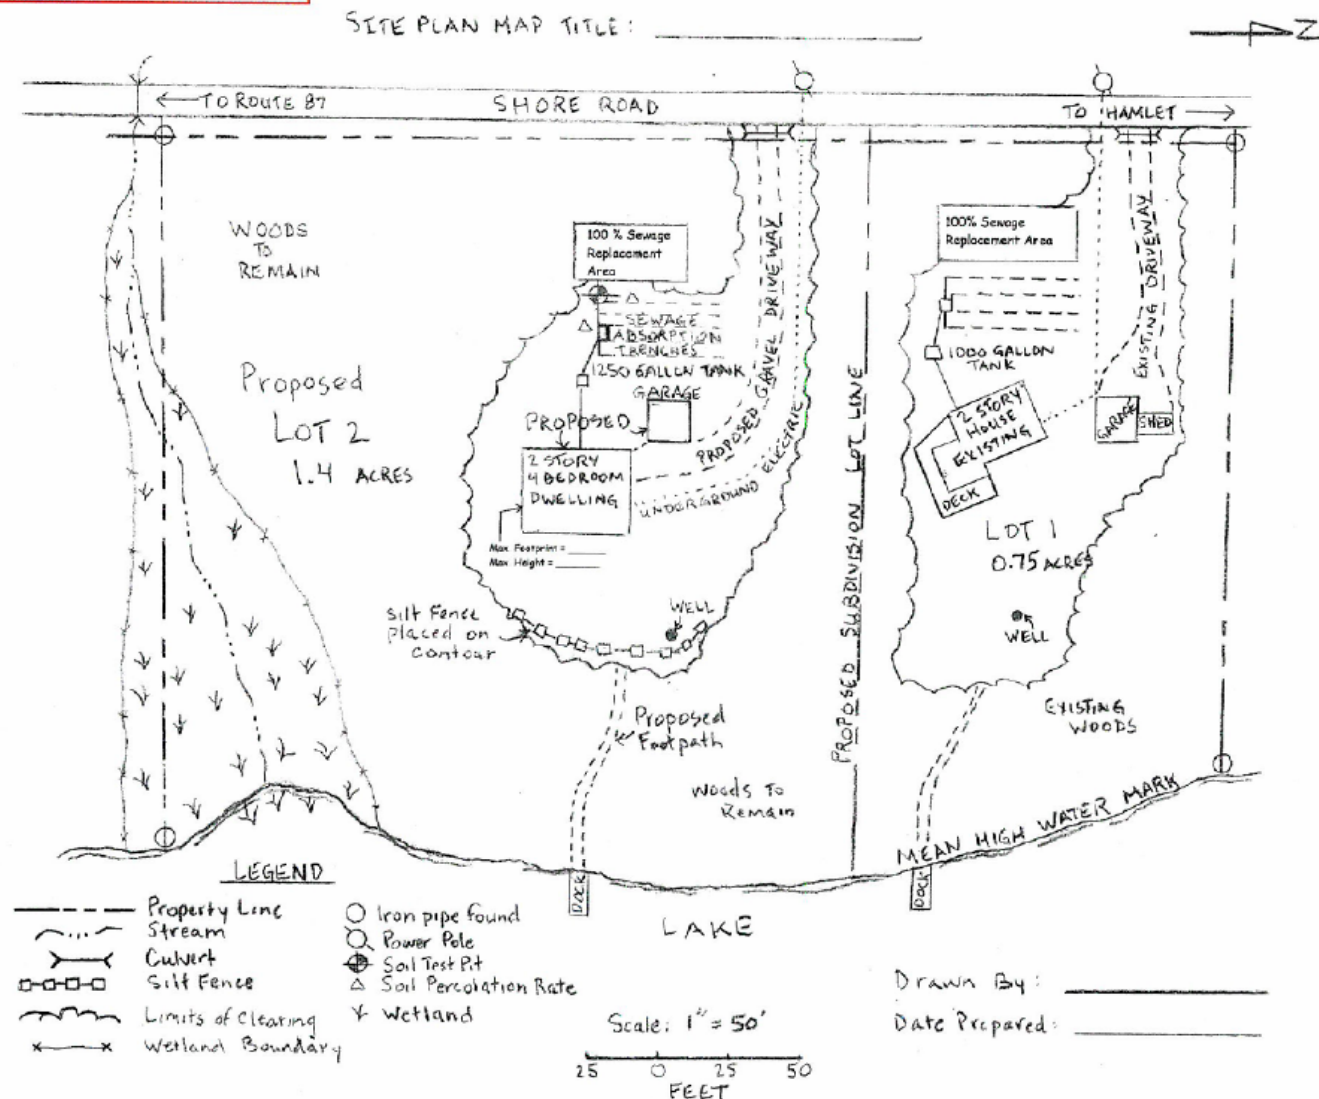 SITE PLAN MAP TITLE:
Z
← TO ROUTE 87
SHORE ROAD
TO HAMLET →
WOODS
TO
REMAIN
Proposed
LOT 2
1.4 ACRES
100 % Sewage
Replacement
Area
SEWAGE
ABSORPTION
TRENCHES
1250 GALLON TANK
GARAGE
PROPOSED
2 STORY
4 BEDROOM
DWELLING
Max Footprint = ______
Max Height = ______
PROPOSED GRAVEL DRIVEWAY
UNDERGROUND ELECTRIC
Silt Fence
placed on
contour
WELL
Proposed
Footpath
Woods To
Remain
DOCK
PROPOSED SUBDIVISION LOT LINE
100% Sewage
Replacement Area
EXISTING DRIVEWAY
1000 GALLON
TANK
2 STORY
HOUSE
EXISTING
DECK
GARAGE
SHED
LOT 1
0.75 ACRES
WELL
EXISTING
WOODS
MEAN HIGH WATER MARK
DOCK
LAKE
LEGEND
Property Line
Stream
Culvert
Silt Fence
Limits of Clearing
Wetland Boundary
Iron pipe found
Power Pole
Soil Test Pit
Soil Percolation Rate
Wetland
Scale: 1" = 50'
25 0 25 50
FEET
Drawn By:
Date Prepared: